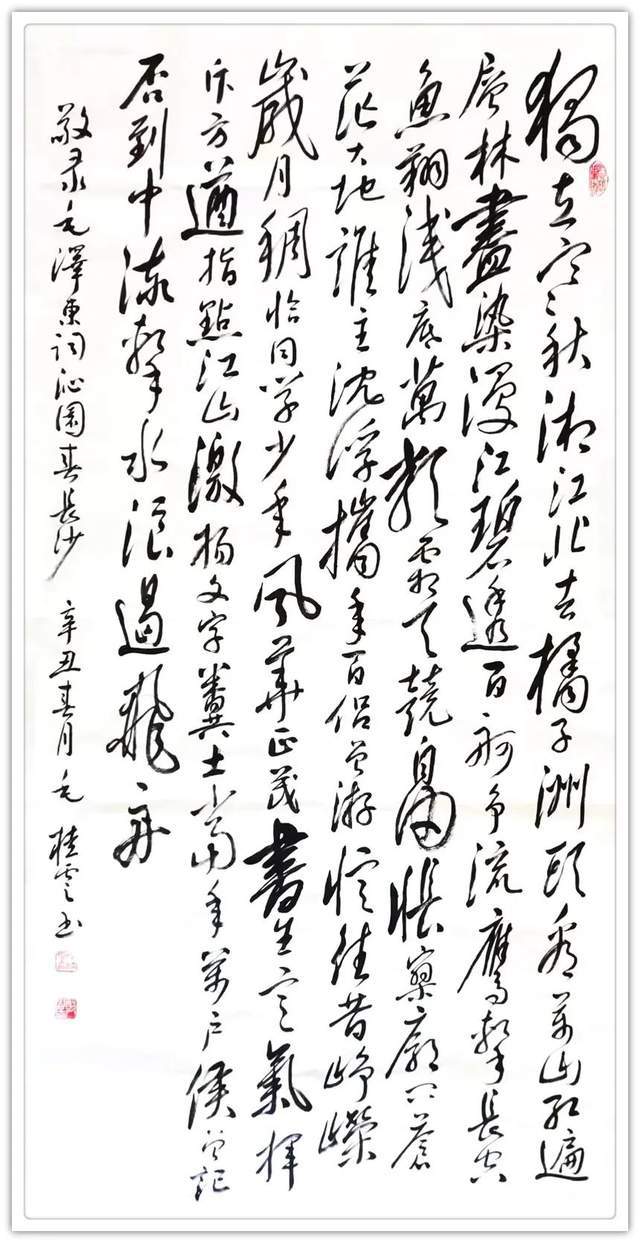 獨立寒秋湘江北去橘子洲頭看萬山紅遍
層林盡染漫江碧透百舸爭流鷹擊長空
魚翔淺底萬類霜天競自由悵寥廓問蒼
茫大地誰主沈浮攜來百侶曾游憶往昔崢嶸
歲月稠恰同學少年風華正茂書生意氣揮
斥方遒指點江山激揚文字糞土當年萬戶侯曾記
否到中流擊水浪遏飛舟
敬录毛澤東詞沁園春長沙 辛丑春月毛桂雲书